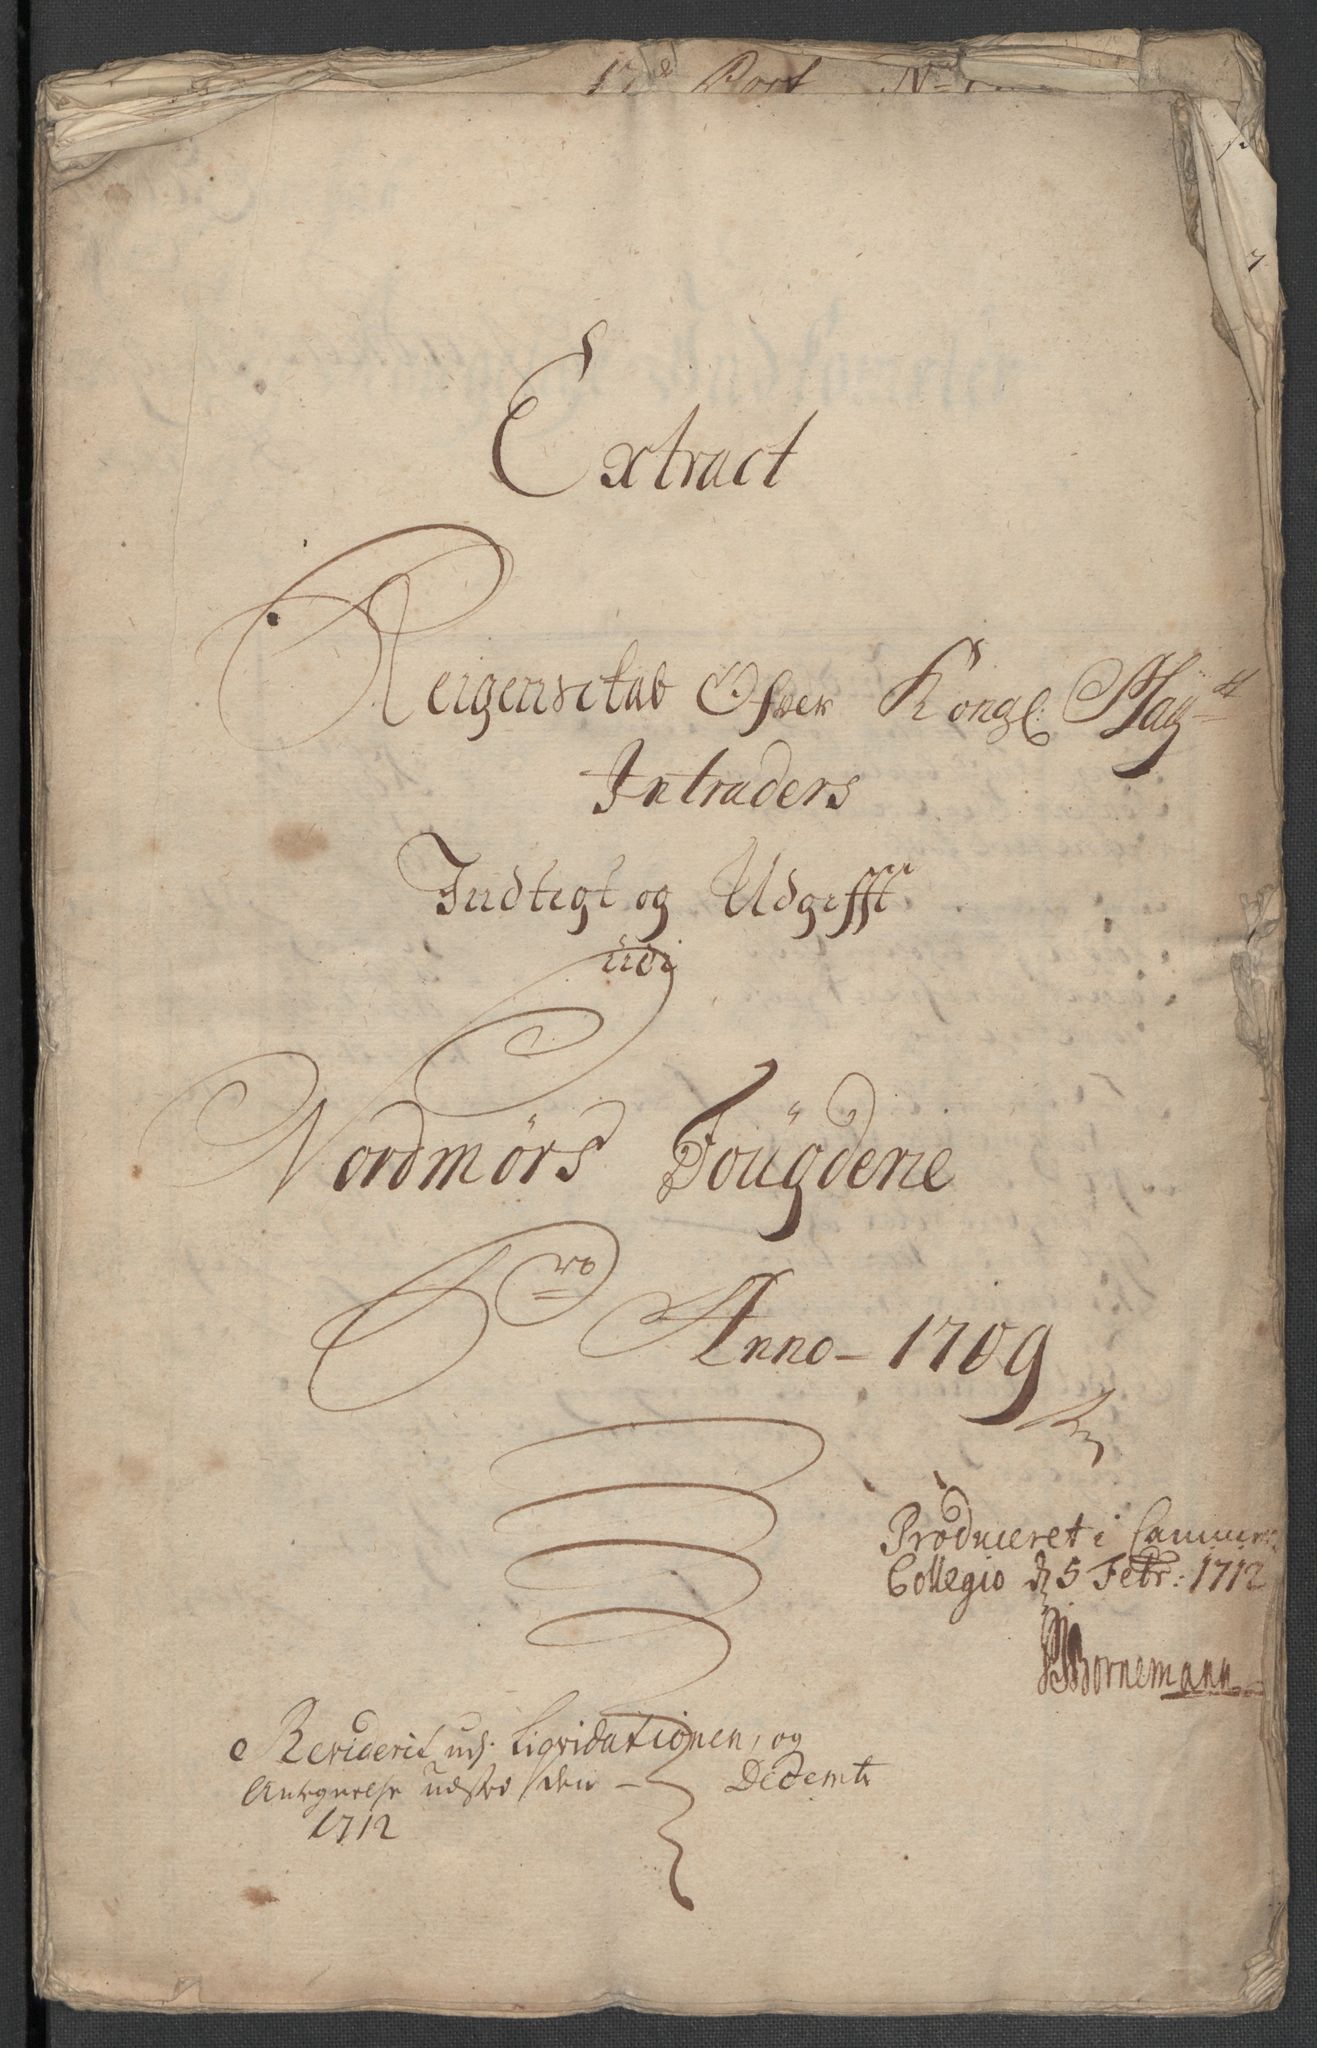 17de Post No
Extract
Reigenskab Ofver Kongl: May:tt
Intraders
Indtegt og Udgifft
udi
Nordmørs Fougderie
Pro Anno 1709
Produceret i Cammer
Collegio d 5 Febr: 1712
Bornemann
Revideret udj Liqvidationen, og
Antegnelse udsted den - Decembr
1712